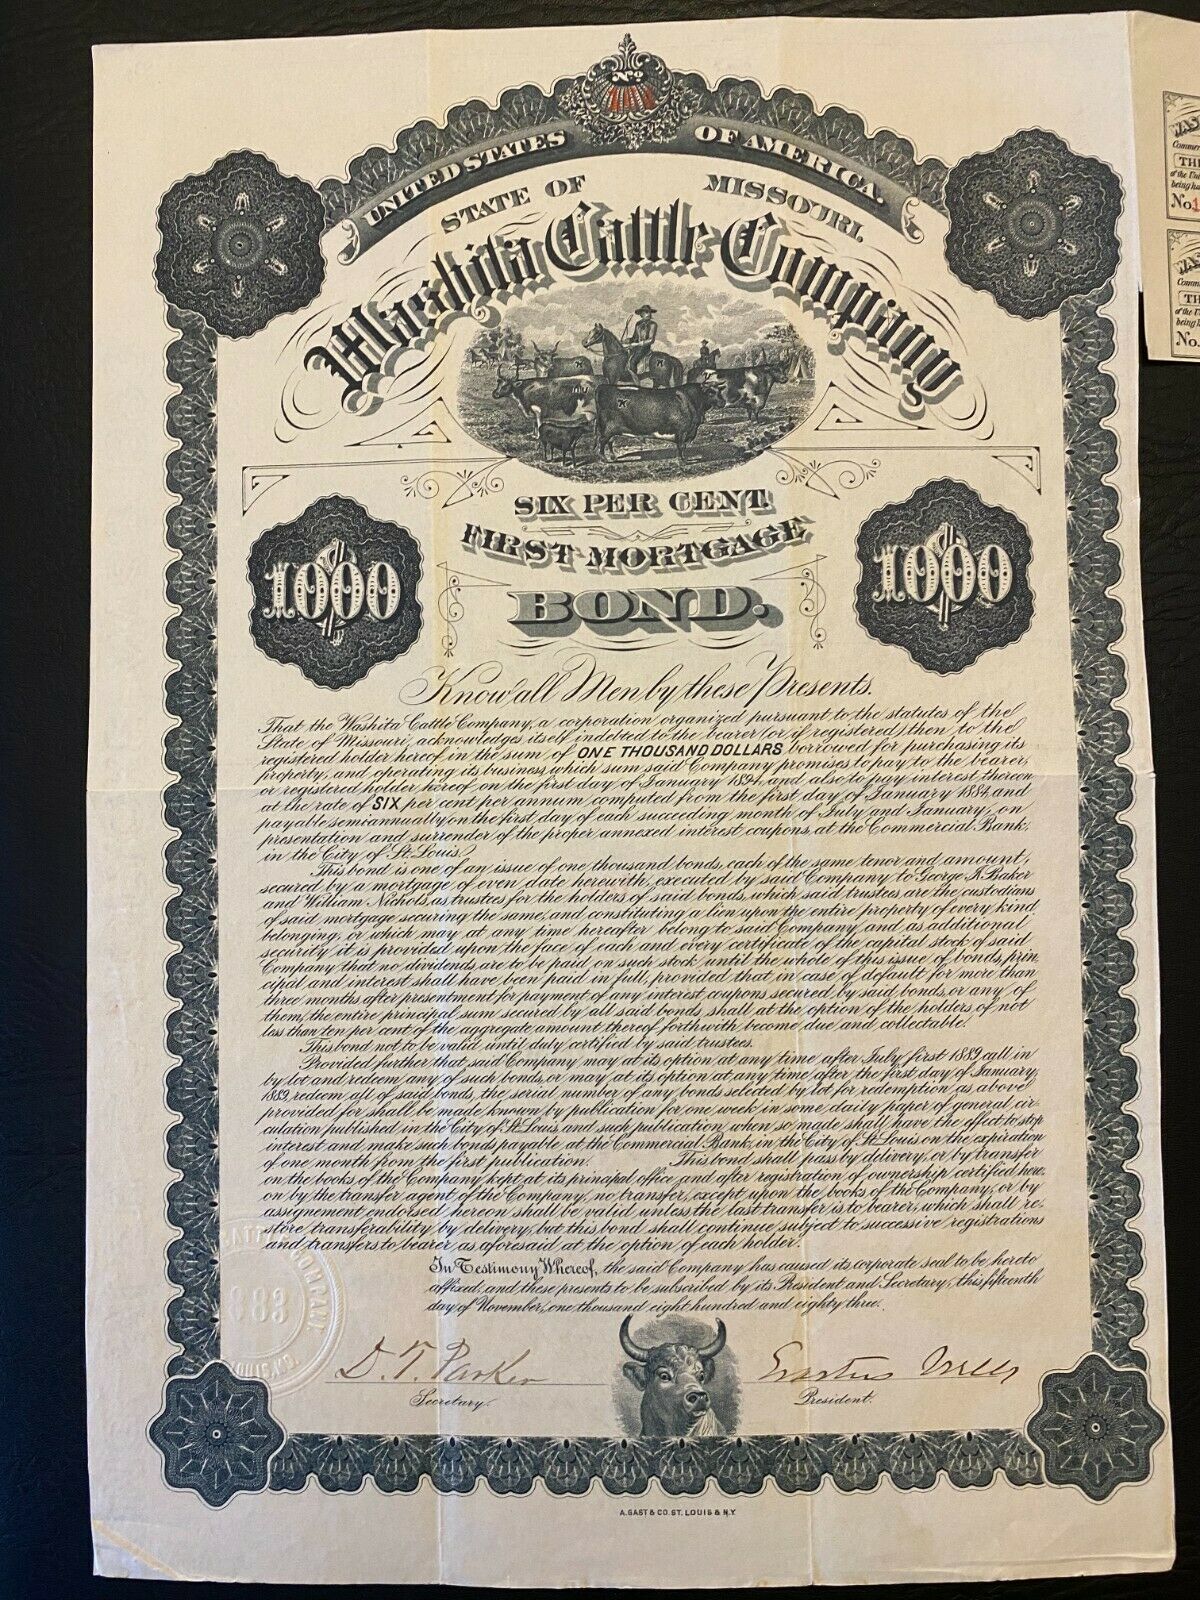 No
UNITED STATES OF AMERICA.
STATE OF MISSOURI,
Washita Cattle Company
SIX PER CENT.
FIRST MORTGAGE
BOND.
1000
1000
Know all Men by these Presents.
That the Washita Cattle Company, a corporation organized pursuant to the statutes of the
State of Missouri, acknowledges itself indebted to the bearer (or if registered) then to the
registered holder hereof in the sum of ONE THOUSAND DOLLARS borrowed for purchasing its
property, and operating its business, which sum said Company promises to pay to the bearer,
or registered holder hereof on the first day of January 1894, and also to pay interest thereon
at the rate of SIX per cent per annum computed from the first day of January 1884, and
payable semiannually on the first day of each succeeding month of July and January, on
presentation and surrender of the proper annexed interest coupons, at the Commercial Bank,
in the City of St. Louis.
This bond is one of any issue of one thousand bonds, each of the same tenor and amount,
secured by a mortgage of even date herewith, executed by said Company to George A. Baker
and William Nichols, as trusties for the holders of said bonds, which said trustees are the custodians
of said mortgage securing the same, and constituting a lien upon the entire property of every kind
belonging, or which may at any time hereafter belong to said Company and as additional
security it is provided upon the face of each and every certificate of the capital stock of said
Company that no dividends are to be paid on such stock until the whole of this issue of bonds, prin-
cipal and interest shall have been paid in full, provided that in case of default for more than
three months after presentment for payment of any interest coupons secured by said bonds, or any of
them, the entire principal sum secured by all said bonds, shall at the option of the holders of not
less than ten per cent of the aggregate amount thereof forthwith become due and collectable.
This bond not to be valid until duly certified by said trustees.
Provided further that said Company may at its option at any time after July first 1889 call in
by lot and redeem any of such bonds, or may at its option at any time after the first day of January,
1889, redeem all of said bonds, the serial number of any bonds selected by lot for redemption as above
provided for shall be made known by publication for one week in some daily paper of general cir-
culation published in the City of St. Louis, and such publication when so made shall have the affect to stop
interest and make such bonds payable at the Commercial Bank, in the City of St. Louis on the expiration
of one month from the first publication. This bond shall pass by delivery, or by transfer
on the books of the Company kept at its principal office and after registration of ownership certified here-
on by the transfer agent of the Company, no transfer, except upon the books of the Company, or by
assignment endorsed hereon shall be valid unless the last transfer is to bearer, which shall re-
store transferability by delivery, but this bond shall continue subject to successive registrations
and transfers to bearer as aforesaid at the option of each holder.
In Testimony Whereof, the said Company has caused its corporate seal to be hereto
affixed, and these presents to be subscribed by its President and Secretary, this fifteenth
day of November, one thousand eight hundred and eighty three.
CATTLE COMPANY
883
LOUIS, MO.
D. T. Parker
Secretary.
Erastus Wells
President.
A. GAST & CO. ST. LOUIS & N.Y.
WAS
Commer
THI
of the Uni
being ha
No. 1
WAS
Comm
TH
of the U
being
No.